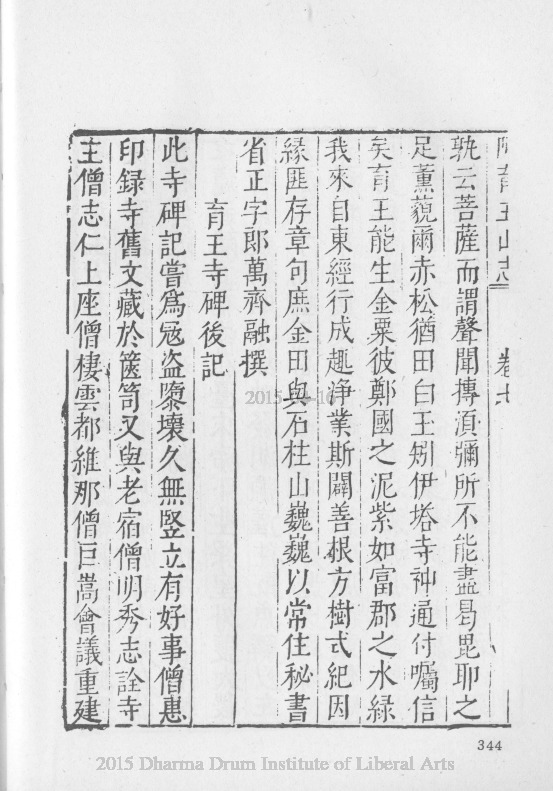 阿育王山志 卷七
孰云菩薩而謂聲聞摶湏彌所不能盡曷毘耶之
足薰藐爾赤松猶田白王矧伊塔寺神通付囑信
矣育王能生金粟彼鄭國之泥紫如富郡之水緑
我來自東經行成趣淨業斯闢善根方樹式紀因
緣匪存章句庶金田與石柱山巍巍以常住秘書
省正字郎萬齊融撰
育王寺碑後記
此寺碑記嘗爲冦盗隳壞久無竪立有好事僧惠
印録寺舊文藏於篋笥又與老宿僧明秀志詮寺
主僧志仁上座僧棲雲都維那僧巨嵩會議重建
344
2015 Dharma Drum Institute of Liberal Arts